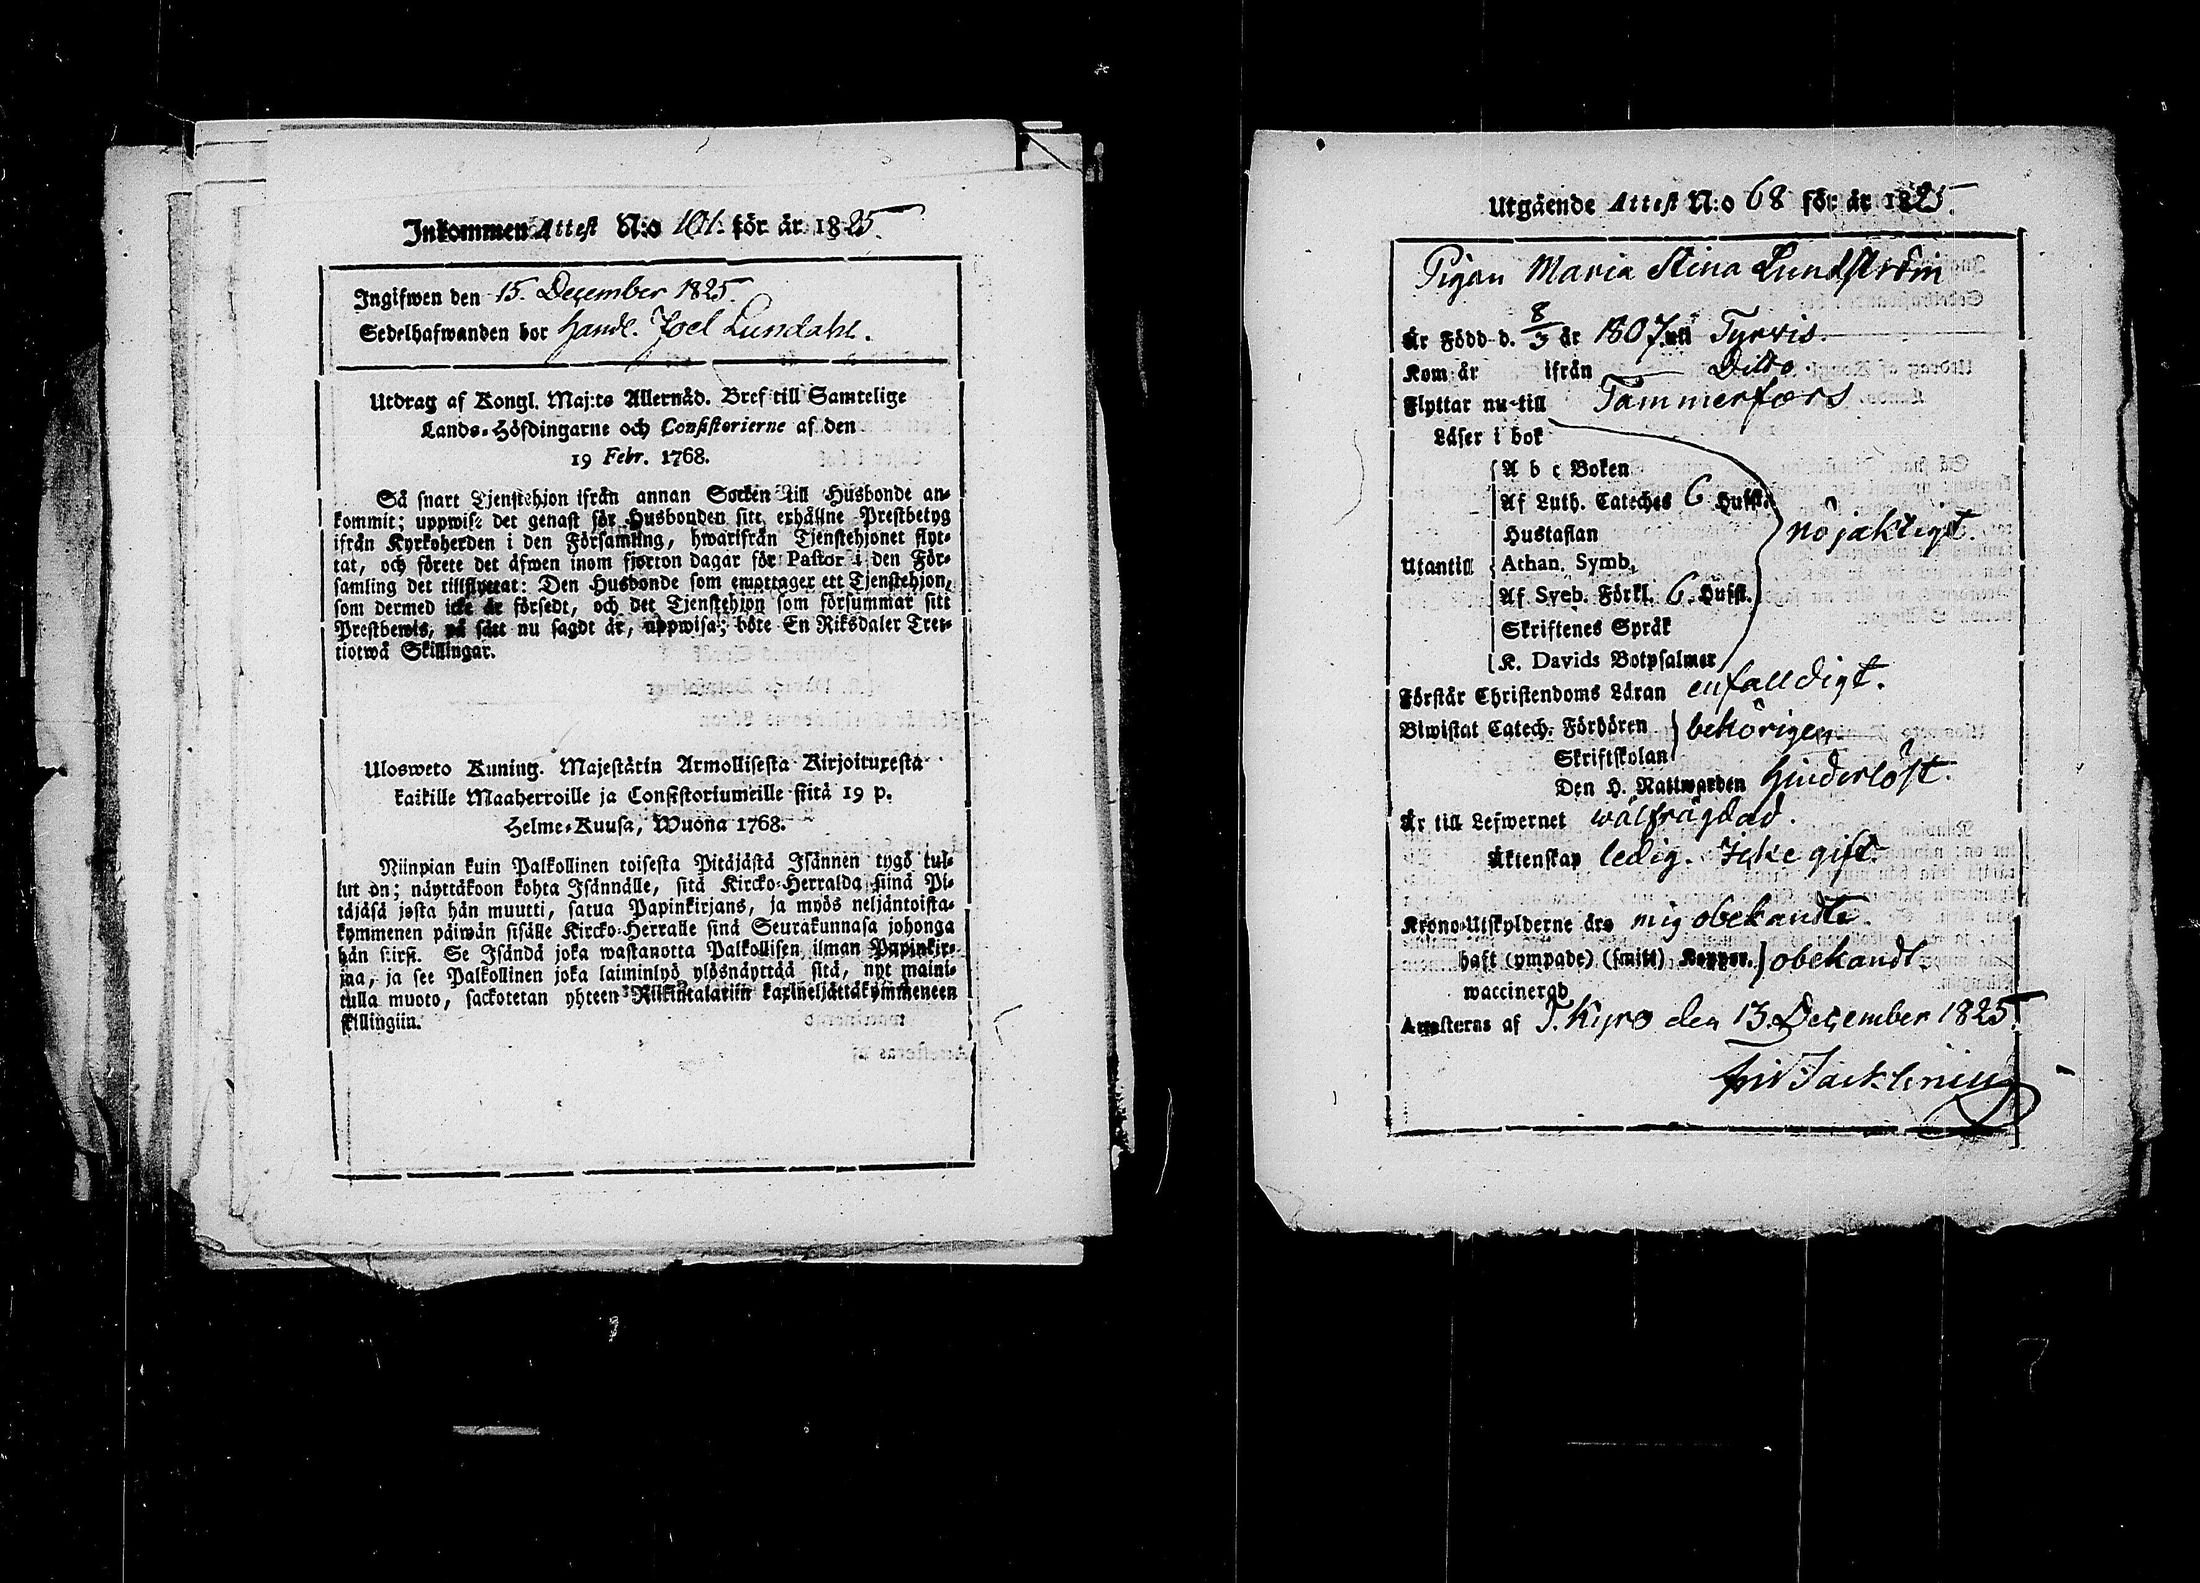 Inkommen Attest N:o 101. för år 1825.
Ingifwen den 15. December 1825.
Sedelhafwanden bor handl. Joel Lundahl.
Utdrag af Kongl. Maj:ts Allernåd. Bref till Samtelige
Lands-Höfdingarne och Consistorierne af den
19 Febr. 1768.
Så snart Tjenstehjon ifrån annan Socken till Husbonde an-
kommit; uppwise det genast för Husbonden sitt erhållne Prestbetyg
ifrån Kyrkoherden i den Församling, hwarifrån Tjenstehjonet flyt-
tat, och förete det äfwen inom fjorton dagar för Pastor i den För-
samling det tillflyttat: Den Husbonde som emottager ett Tjenstehjon,
som dermed icke är försedt, och det Tjenstehjon som försummar sitt
Prestbewis, på sätt nu sagdt är, uppwisa; böte En Riksdaler Tret-
tiotwå Skillingar.
Ulosweto Kuning. Majestätin Armollisesta Kirjoituxesta
kaikille Maaherroille ja Consistoriumeille siitä 19 p.
Helme-Kuusa, Wuona 1768.
Niinpian kuin Palkollinen toisesta Pitäjästä Isännen tygö tul-
lut on; näyttäkoon kohta Isännälle, sitä Kircko-Herralda siinä Pi-
täjäsä josta hän muutti, saatua Papinkirjans, ja myös neljäntoista-
kymmenen päiwän sisälle Kircko-Herralle siinä Seurakunnasa johonga
hän siirsi. Se Isändä joka wastanotta Palkollisen ilman Papinkir-
jaa, ja see Palkollinen joka laiminlyö ylösnäyttää sitä, nyt maini-
tulla muoto, sackotetan yhteen Riikintalariin kaxineljättäkymmeneen
skillingiin.
Utgående Attest N:o 68 för år 1825.
Pigan Maria Stina Lundström
Är Född d. 8/3 år 1807. uti Tyrvis.
Kom år ifrån Ditto.
Flyttar nu till Tammerfors
Läser i bok
A b c Boken
Af Luth. Cateches 6 Hufst.
Hustaflan nöjaktigt.
Utantill Athan. Symb.
Af Sveb. Förkl. 6. Hufst.
Skriftenes Språk
K. Davids Botpsalmer
Förstår Christendoms Läran enfalldigt.
Biwistat Catech. Förhören behörigen
Skriftskolan
Den H. Nattwarden hinderlöst.
Är till Lefwernet wälfrägdad.
Äktenskap ledig. Icke gift.
Krono-Utskylderne äro mig obekandte.
haft (ympade) (smitt) Koppor. obekandt.
waccinerad
Attesteras af T. Kyro den 13. December 1825.